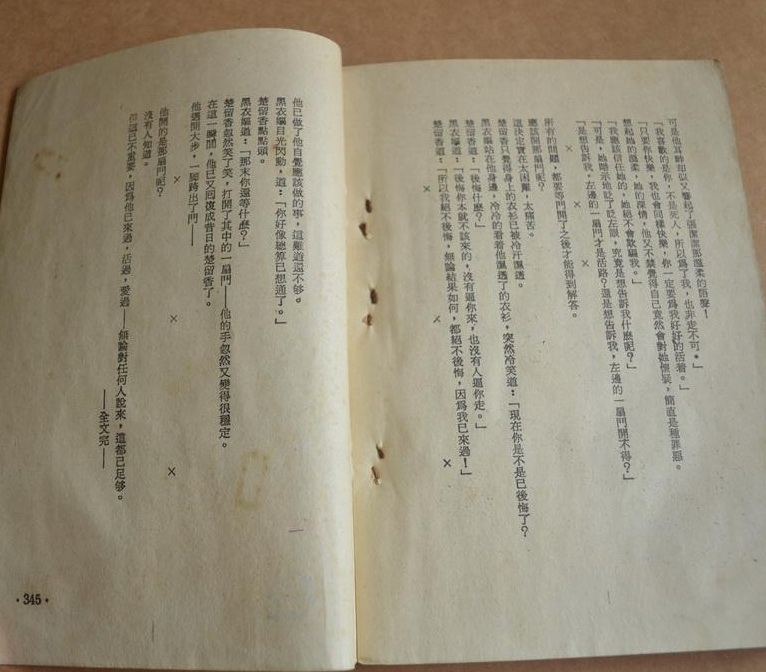 可是他耳畔却似又響起了張潔潔那溫柔的語聲！
「我喜歡的是你，不是死人，所以爲了我，也非走不可。」
「只要你快樂，我也會同樣快樂，你一定要爲我好好的活着。」
想起她的溫柔，她的深情，他又不禁覺得自己竟然會對她懷疑，簡直是種罪惡。
「我應該信任她的，她絕不會欺騙我。」
可是，她暗示地眨了眨左眼，究竟是想告訴我什麼呢？
「是想告訴我，左邊的一扇門才是活路？還是想告訴我，左邊的一扇門開不得？」
× × ×
所有的問題，都要等門開了之後才能得到解答。
應該開那扇門呢？
這決定實在太困難，太痛苦。
楚留香只覺得身上的衣衫已被冷汗濕透。
黑衣嫗站在他身邊，冷冷的看着他濕透了的衣衫，突然冷笑道：「現在你是不是已後悔了？」
楚留香道：「後悔什麼？」
黑衣嫗道：「後悔你本就不該來的，沒有逼你來，也沒有人逼你走。」
楚留香道：「所以我絕不後悔，無論結果如何，都絕不後悔，因爲我已來過！」
× × ×
他已做了他自覺應該做的事，這難道還不够。
黑衣嫗目光閃動，道：「你好像總算已想通了。」
楚留香點點頭。
黑衣嫗道：「那末你還等什麼？」
楚留香忽然笑了笑，打開了其中的一扇門——他的手忽然又變得很穩定。
在這一瞬間，他已又囘復成昔日的楚留香了。
他邁開大步，一脚跨出了門——
× × ×
他開的是那扇門呢？
沒有人知道。
但這已不重要，因爲他已來過，活過，愛過——無論對任何人說來，這都已足够。
——全文完——
·345·